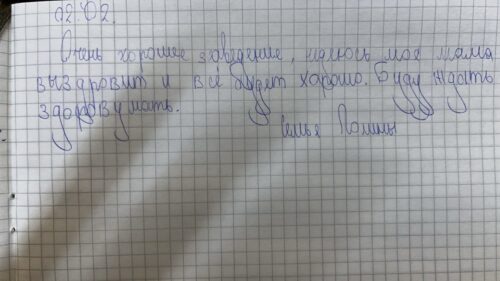 02.02.
Очень хорошее заведение, надюсь моя мама
выздровит и всё будет хорошо. Буду ждать
здоровую мать.
Семья Полины